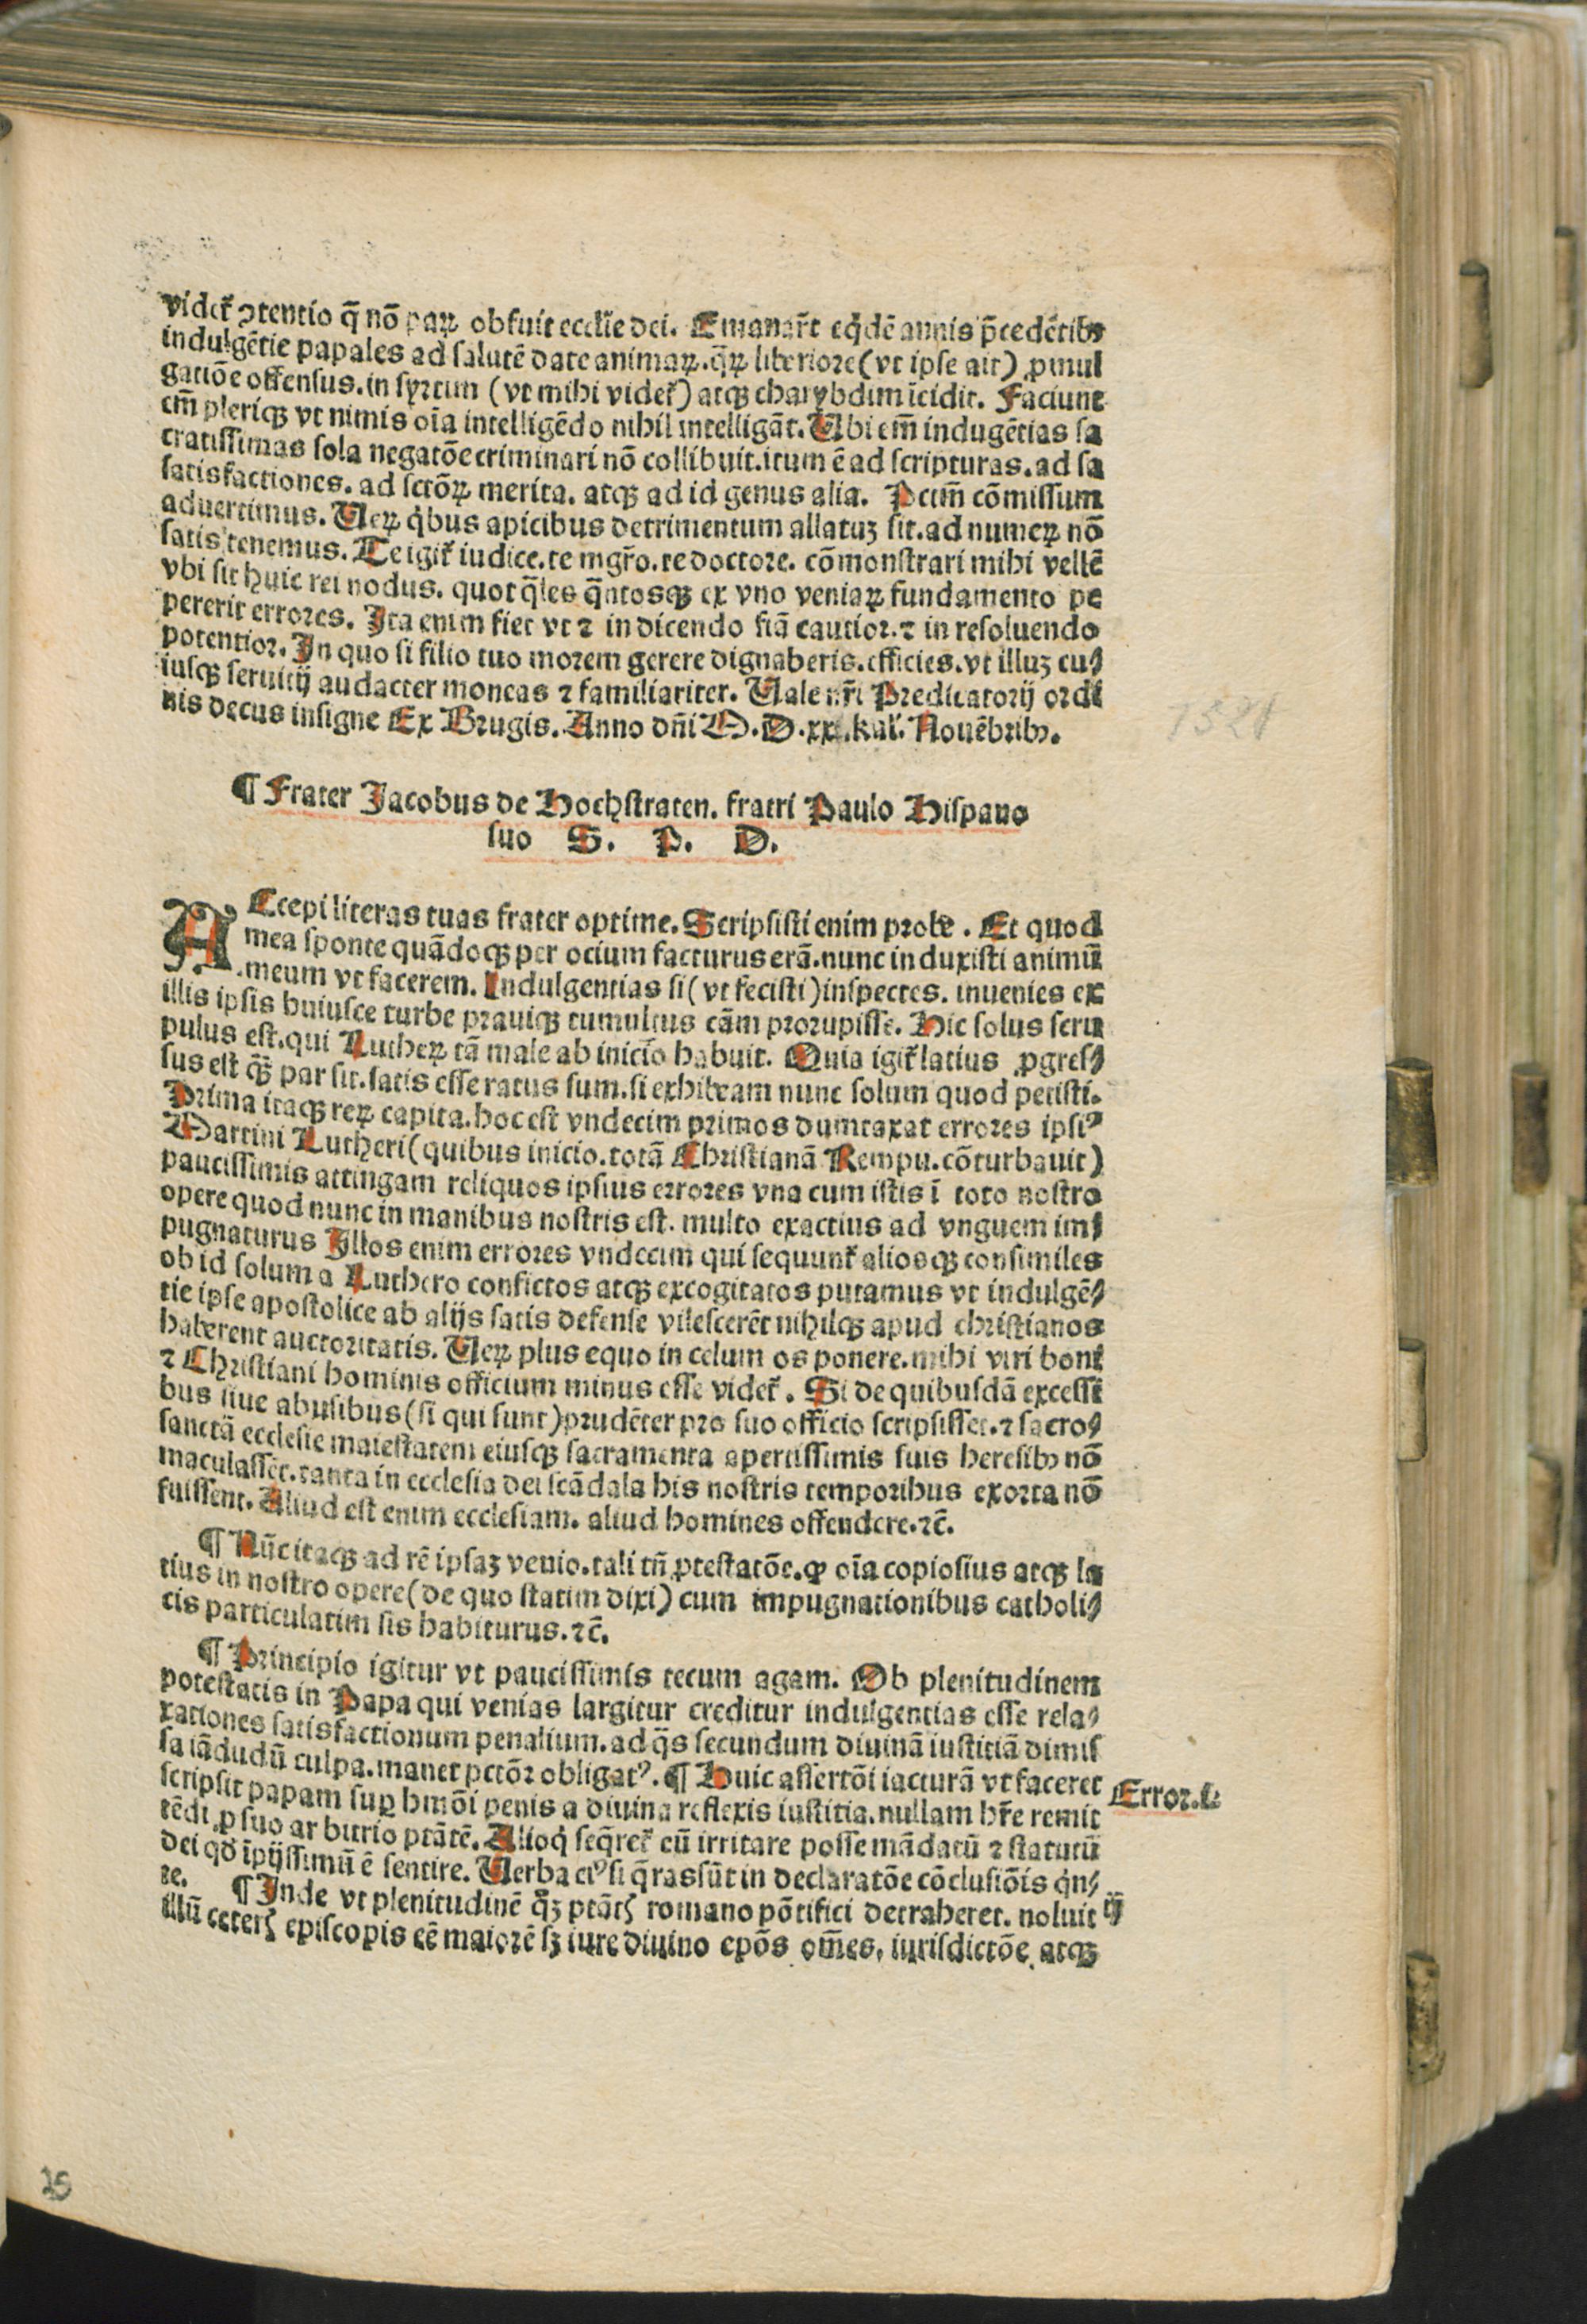 videt᷑ ꝯtentio q̄ nō paꝝ obfuit eccl̄ie dei. Emanar̄t eq̇dē annis p̄cedētibꝰ
indulgētie papales ad ſalutē date animaꝝ. q̄ꝝ liberiore (vt ipſe ait) ꝓmul
gatiōe offenſus. in ſyrtim (vt mihi videt᷑) atqꝫ charybdim īcidit. Faciunt
em̄ pleriqꝫ vt nimis oīa intelligēdo nihil intelligāt. Ubi em̄ indugētias ſa
cratiſſimas ſola negatōe criminari nō collibuit. itum ē ad ſcripturas. ad ſa
ſatiſfactiones. ad ſctōꝝ merita. atqꝫ ad id genus alia. Pctm̄ cōmiſſum
aduertimus. Ueꝝ q̇bus apicibus detrimentum allatuꝫ ſit. ad numeꝝ nō
ſatis tenemus. Te igit᷑ iudice. te mgr̄o. te doctore. cōmonſtrari mihi vellē
vbi ſit huic rei nodus. quot q̄les q̄ntosqꝫ ex vno veniaꝝ fundamento pe
pererit errores. Ita enim fiet vt ⁊ in dicendo fiā cautior. ⁊ in reſoluendo
potentior. In quo ſi filio tuo morem gerere dignaberis. efficies. vt illuꝫ cu⸗
iuſqꝫ ſeruitij audacter moneas ⁊ familiariter. Uale nr̄i Predicatorij ordi
nis decus inſigne Ex Brugis. Anno dn̄i M. D. xxi. kal'. Nouēbribꝰ.
1521
¶ Frater Jacobus de Hochſtraten. fratri Paulo Hiſpano
ſuo S. P. D.
ACcepi literas tuas frater optime. Scripſiſti enim probe. Et quod
mea ſponte quādoqꝫ per ocium facturus erā. nunc induxiſti animū
meum vt facerem. Indulgentias ſi (vt feciſti) inſpectes. inuenies ex
illis ipſis huiuſce turbe prauiqꝫ tumultus cām prorupiſſe. Hic ſolus ſcru
pulus eſt. qui Lutheꝝ tā male ab inicio habuit. Quia igit᷑ latius ꝓgreſ⸗
ſus eſt q̄ꝫ par ſit. ſatis eſſe ratus ſum. ſi exhibeam nunc ſolum quod petiſti.
Prima itaqꝫ reꝝ capita. hoc eſt vndecim primos dumtaxat errores ipſiꝰ
Martini Lutheri (quibus inicio. totā Chriſtianā Rempu. cōturbauit)
pauciſſimis attingam reliquos ipſius errores vna cum iſtis ī toto noſtro
opere quod nunc in manibus noſtris eſt. multo exactius ad vnguem im⸗
pugnaturus Illos enim errores vndecim qui ſequunt᷑ alioſqꝫ conſimiles
ob id ſolum a Luthero confictos atqꝫ excogitatos putamus vt indulgē⸗
tie ipſe apoſtolice ab alijs ſatis defenſe vileſcerēt nihilqꝫ apud chriſtianos
haberent auctoritatis. Ueꝝ plus equo in celum os ponere. mihi viri boni
⁊ Chriſtiani hominis officium minus eſſe videt᷑. Si de quibuſdā exceſſi
bus ſiue abuſibus (ſi qui ſunt) prudēter pro ſuo officio ſcripſiſſet. ⁊ ſacro⸗
ſanctā eccleſie maieſtatem eiuſqꝫ ſacramenta apertiſſimis ſuis hereſibꝰ nō
maculaſſet. tanta in eccleſia dei ſcādala his noſtris temporibus exorta nō
fuiſſent. Aliud eſt enim eccleſiam. aliud homines offendere. ⁊c̄.
¶ Nūc itaqꝫ ad rē ipſaꝫ venio. tali tn̄ ꝓteſtatōe. ꝙ oīa copioſius atqꝫ la
tius in noſtro opere (de quo ſtatim dixi) cum impugnationibus catholi⸗
cis particulatim ſis habiturus. ⁊c̄.
¶ Principio igitur vt pauciſſimis tecum agam. Ob plenitudinem
poteſtatis in Papa qui venias largitur creditur indulgentias eſſe rela⸗
xationes ſatiſfactionum penalium. ad q̄s ſecundum diuinā iuſtitiā dimiſ
ſa iādudū culpa. manet pctōr obligatꝰ. ¶ Huic aſſertōi iacturā vt faceret
Error. i.
ſcripſit papam ſuꝑ hmōi penis a diuina reflexis iuſtitia. nullam hr̄e remit
tēdi ꝓ ſuo arbitrio ptātē. Alioq̇ ſeq̄ret᷑ eū irritare poſſe mādatū ⁊ ſtatutū
dei qd̄ īpijſſimū ē ſentire. Uerba eiꝰ ſi q̄ras ſūt in declaratōe cōcluſiōis q̇n⸗
te. ¶ Inde vt plenitudinē q̄ꝫ ptātꝭ romano pōtifici detraheret. noluit
ij
illū ceterꝭ epiſcopis eē maiorē ſꝫ iure diuino epōs om̄es, iuriſdictōe atqꝫ